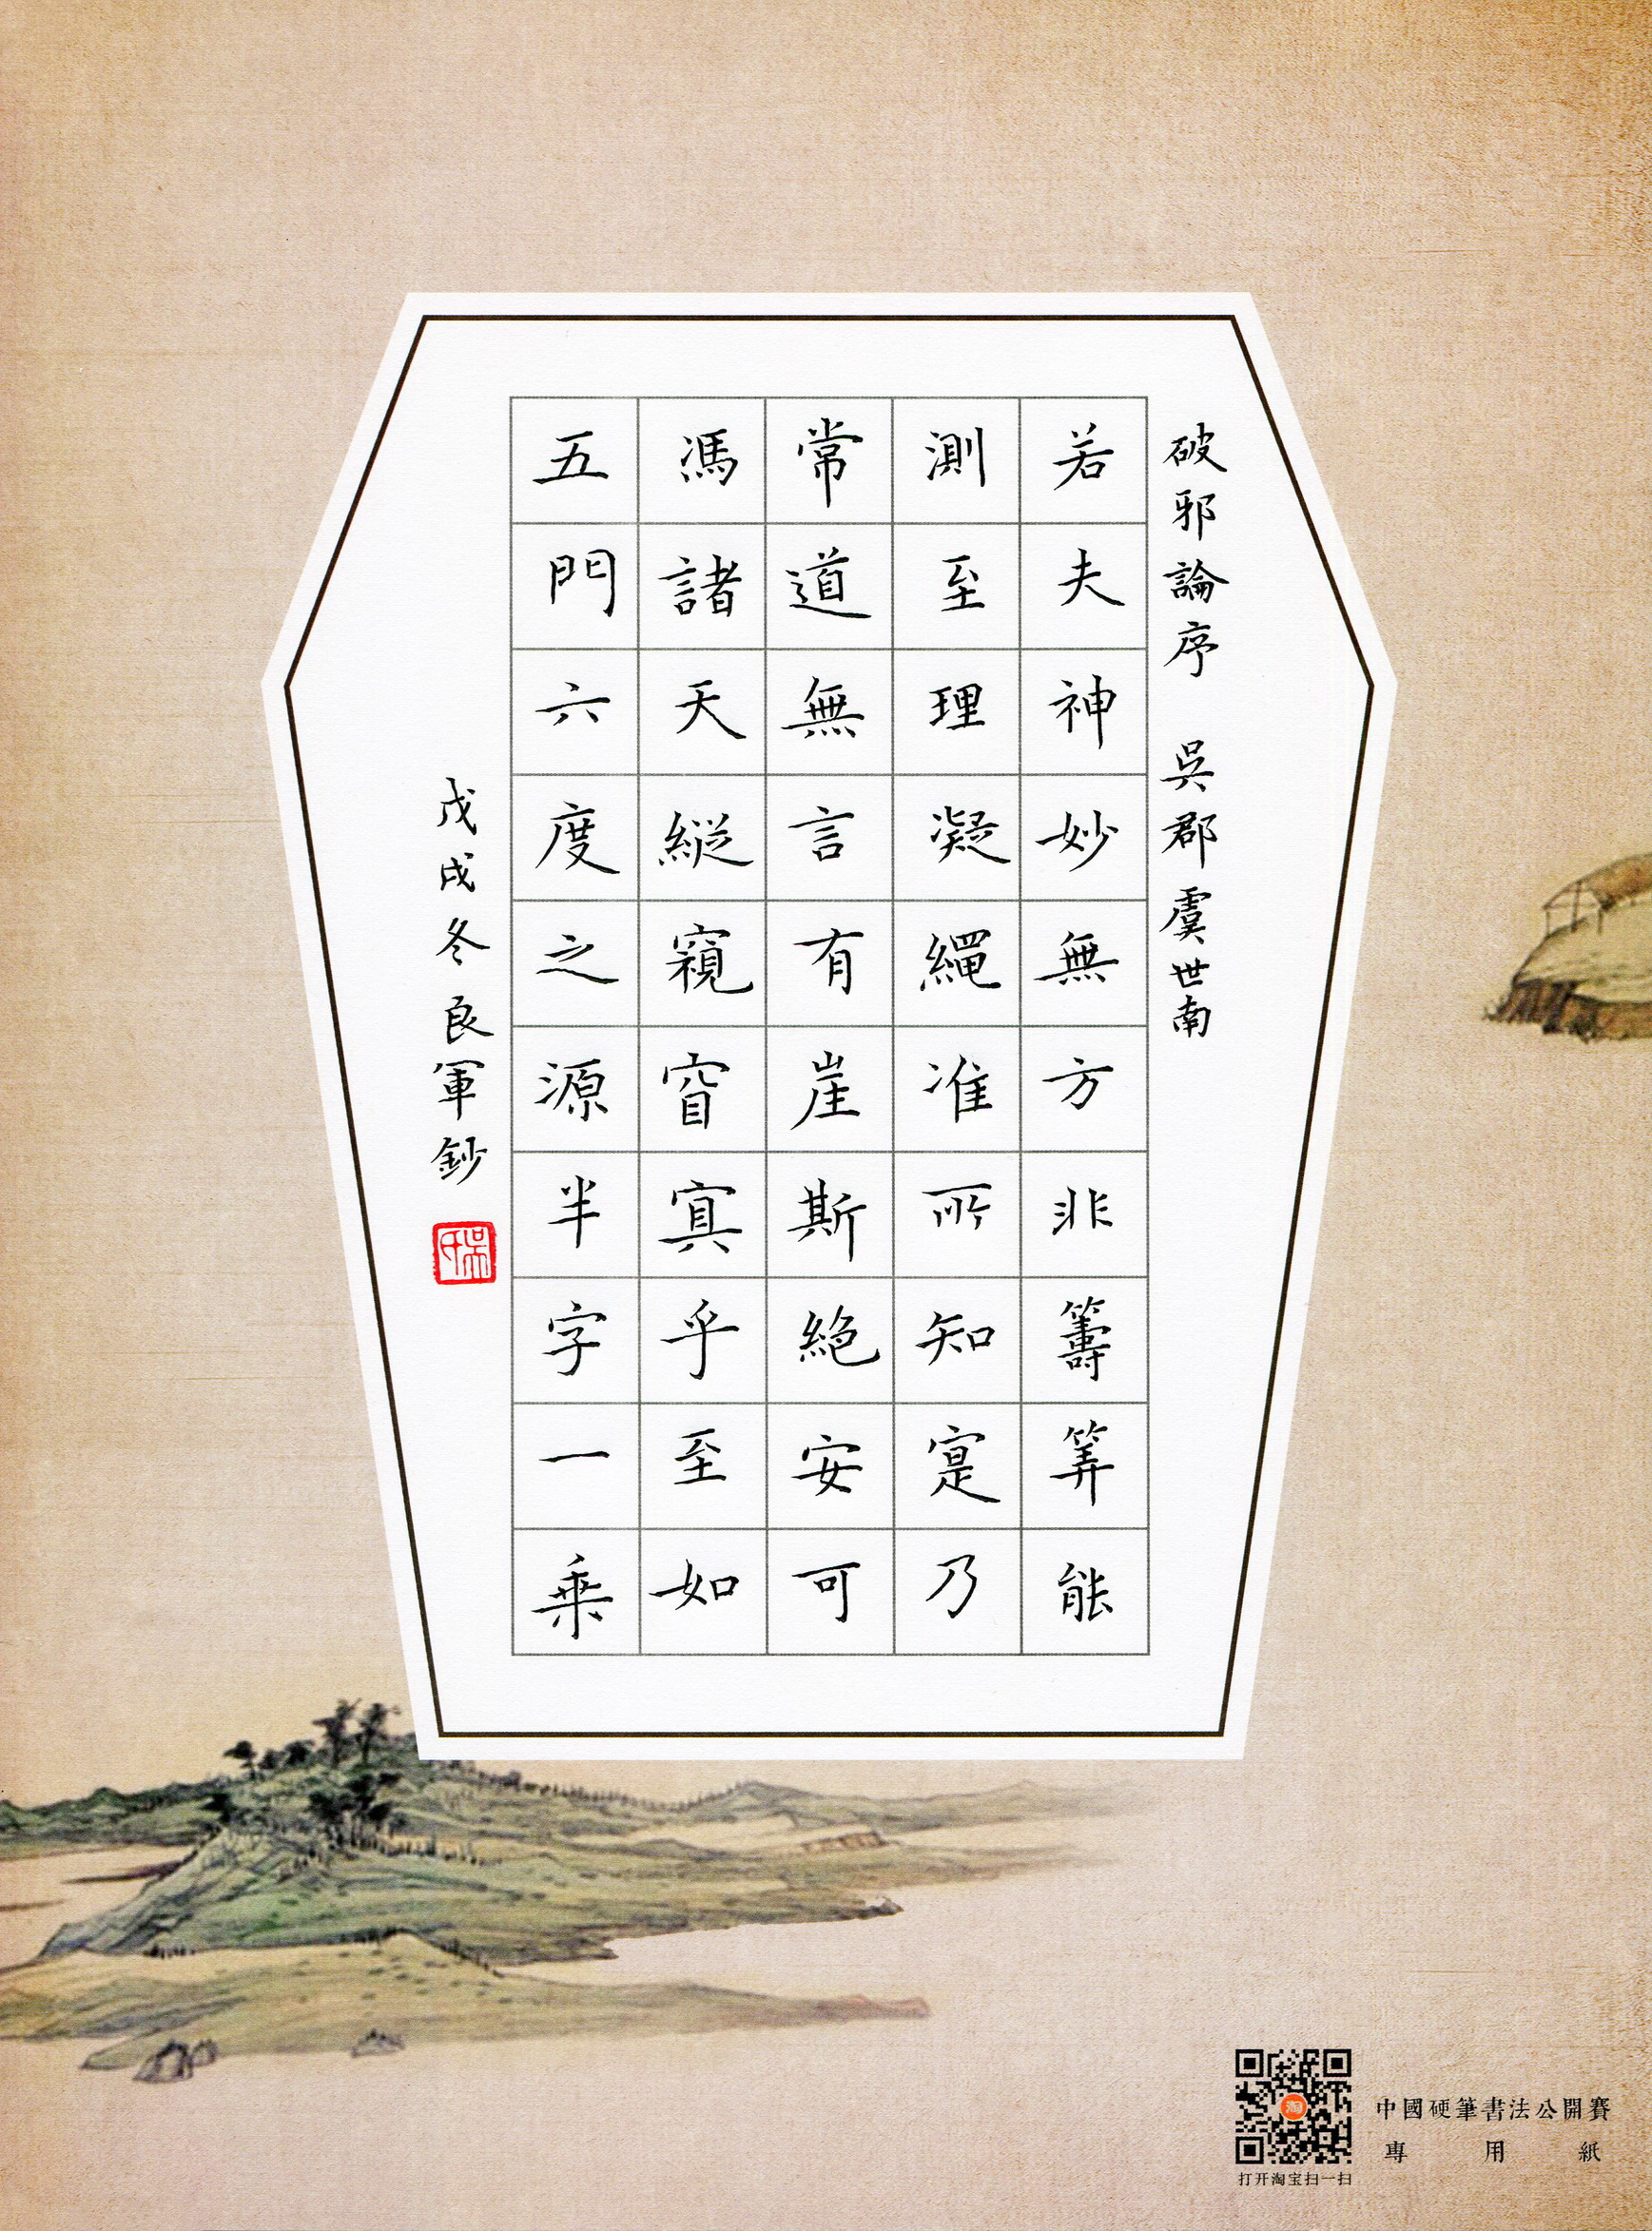 破邪論序 吳郡虞世南
若夫神妙無方非籌筭能
測至理凝繩准所知寔乃
常道無言有崖斯絶安可
馮諸天縦窺窅寘乎至如
五門六度之源半字一乗
戊戌冬良軍鈔
中國硬筆書法公開賽
專用紙
淘
打开淘宝扫一扫